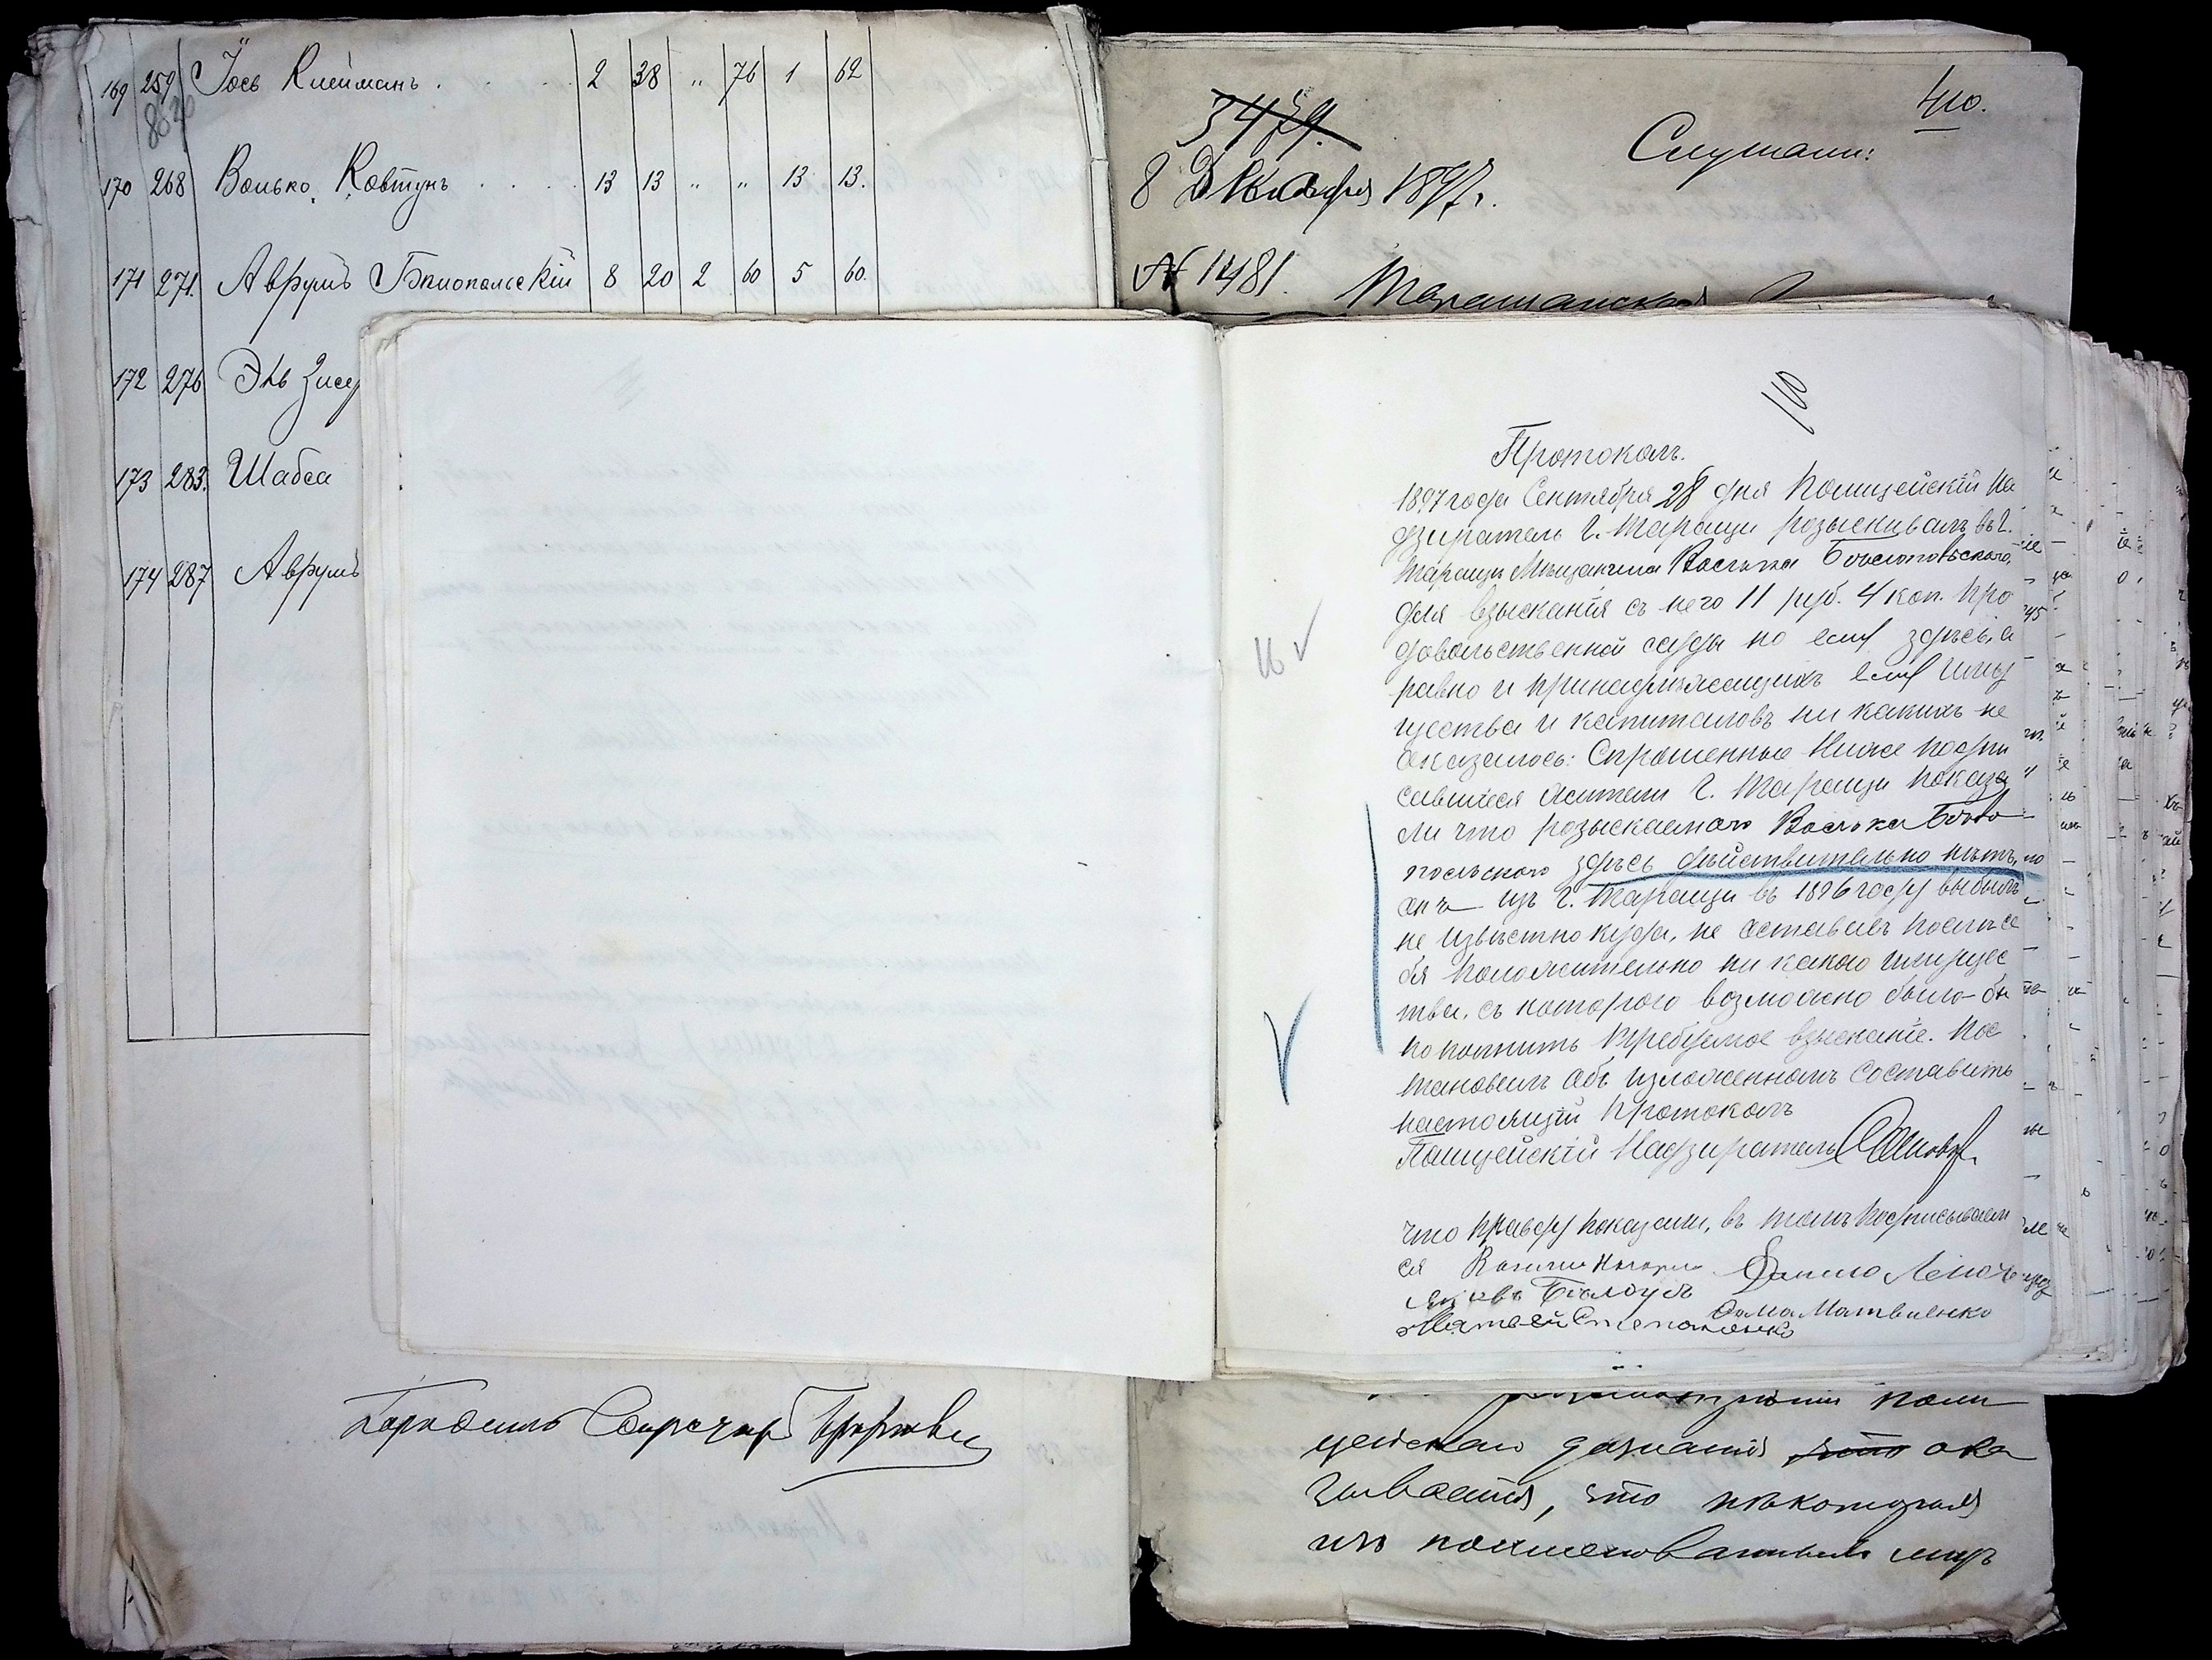 169 259 Іось Клейманъ . . . 2 38 " 76 1 62
8620
170 268 Волько Ковтунъ . . . . 13 13 " " 13 13.
171 271. Аврумъ Бѣлопольскій 8 20 2 60 5 60.
172 276
173 283. Шабса
174 287 Аврумъ
410.
3479.
Слушали:
8 Декабря 1897 г.
№ 1481.
Таращанская
110
Протоколъ.
1897 года Сентября 28 дня Полицейскій На
дзиратель г. Таращи розыскивалъ въ г.
Таращѣ Мѣщанина Волька Бѣлопольскаго,
для взысканія съ него 11 руб. 4 коп. про
довольственной ссуды но его здѣсь, а
равно и принадлежащихъ ему иму
щества и капиталовъ ни какихъ не
оказалось: Спрошенные ниже подпи
савшіеся жители г. Таращи показа
ли что розыскаемаго Волька Бѣло
польскаго здѣсь дѣйствительно нѣтъ,
онъ изъ г. Таращи въ 1896 году выбылъ
не извѣстно куда, не оставивъ послѣ се
бя положительно ни какого имущес
тва, съ котораго возможно было-бы
пополнить требуемое взысканіе. Пос
тановилъ объ изложенномъ составить
настоящій протоколъ
Полицейскій Надзиратель
16
что правду показали, въ томъ подписываем
ся
Данило
Яковъ
Сома Матвіенко
Матвей Степаненко
Городской Секретарь
поли
цейскаго дознанія что ока
зывается, что некоторыя
изъ поименованныхъ лицъ